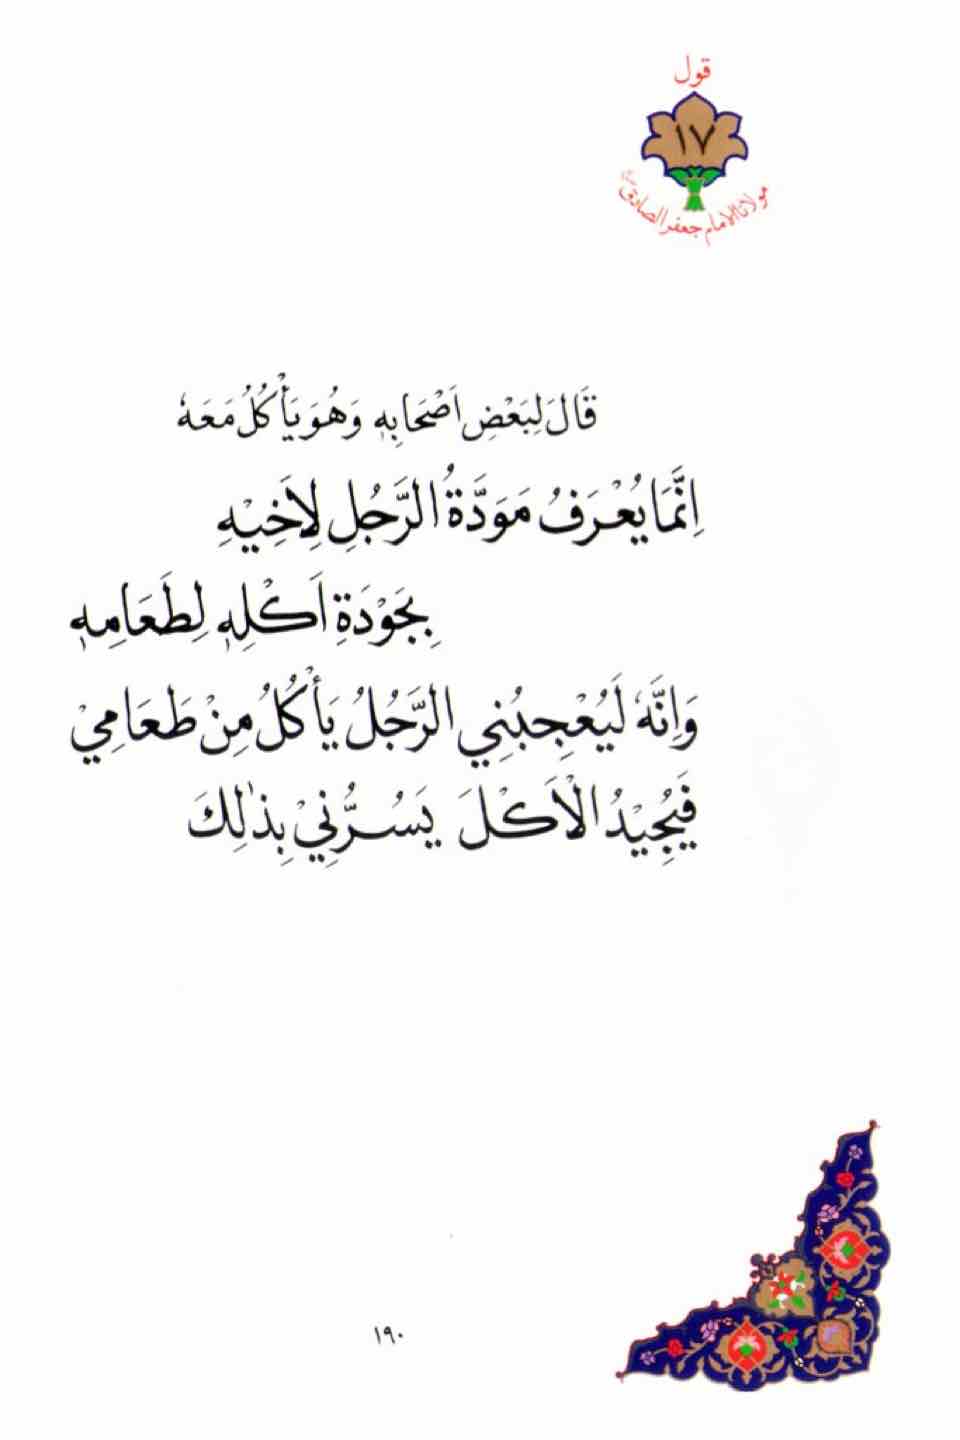 قول
١٧
مولانا الامام جعفر الصادق
قَالَ لِبَعْضِ اَصْحَابِهٖ وَهُوَ يَأْكُلُ مَعَهٗ
اِنَّمَا يُعْرَفُ مَوَدَّةُ الرَّجُلِ لِاَخِيْهِ
بِجَوْدَةِ اَكْلِهٖ لِطَعَامِهٖ
وَاِنَّهٗ لَيُعْجِبُنِي الرَّجُلُ يَأْكُلُ مِنْ طَعَامِيْ
فَيُجِيْدُ الْاَكْلَ يَسُرُّنِيْ بِذٰلِكَ
١٩٠